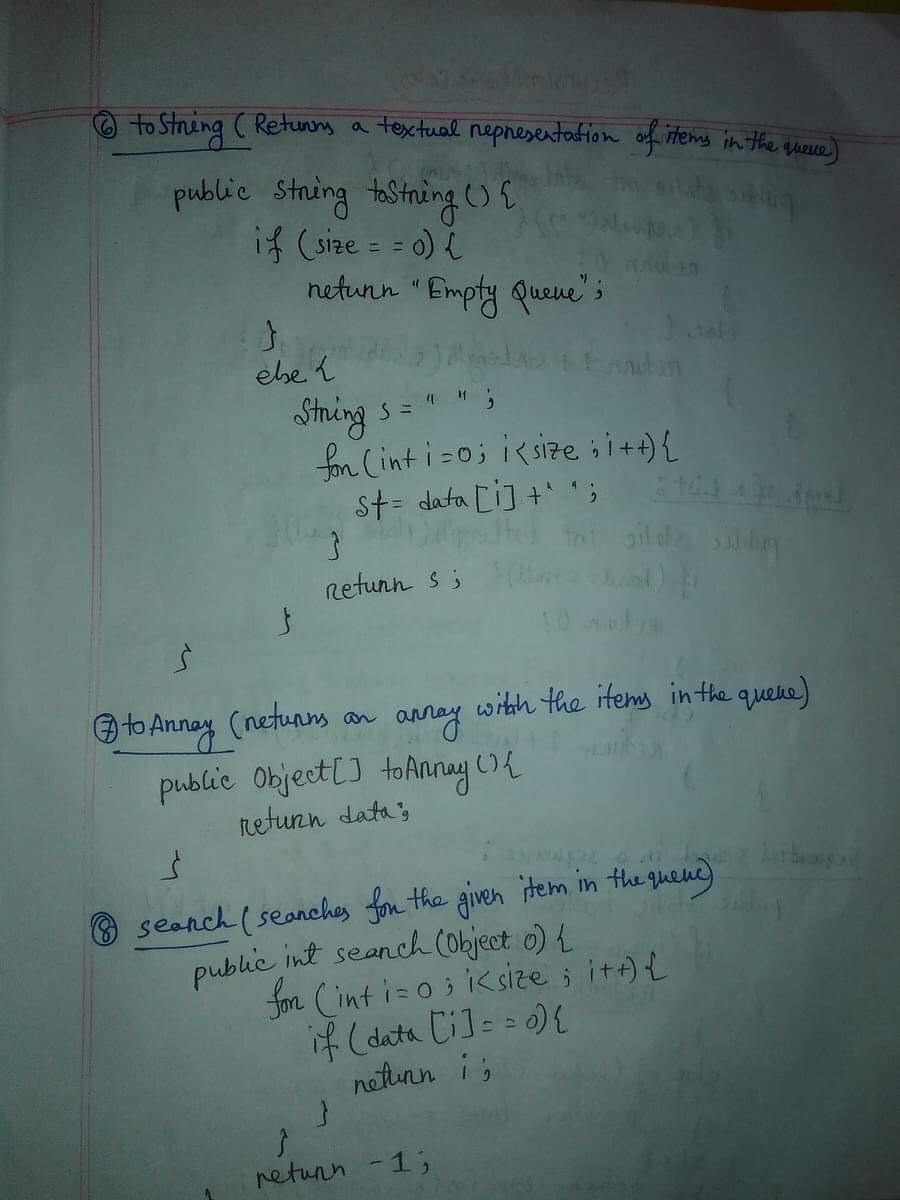 ⑥ toString (Returns a textual representation of items in the queue)
public String toString () {
if (size = = 0) {
return "Empty Queue";
}
else {
String s = " ";
for (int i=0; i<size ; i++) {
s+= data [i] + " ";
}
return s ;
}
}
⑦ to Array (returns an array with the items in the queue)
public Object [] toArray () {
return data;
}
⑧ search (searches for the given item in the queue)
public int search (Object o) {
for (int i=0 ; i<size ; i++) {
if (data [i] = = o) {
return i ;
}
}
return -1 ;